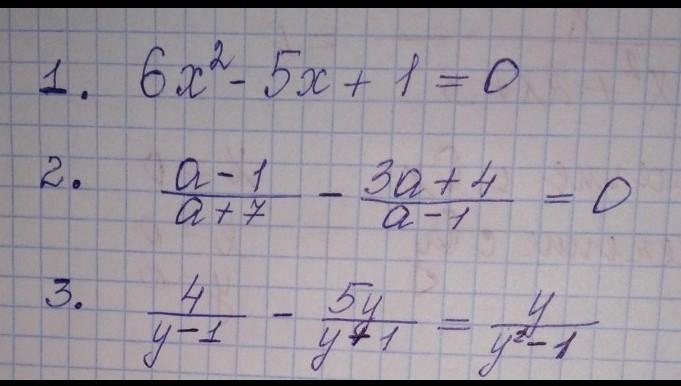 1. 6x² - 5x + 1 = 0
2. (a - 1)/(a + 7) - (3a + 4)/(a - 1) = 0
3. 4/(y - 1) - 5y/(y + 1) = y/(y² - 1)